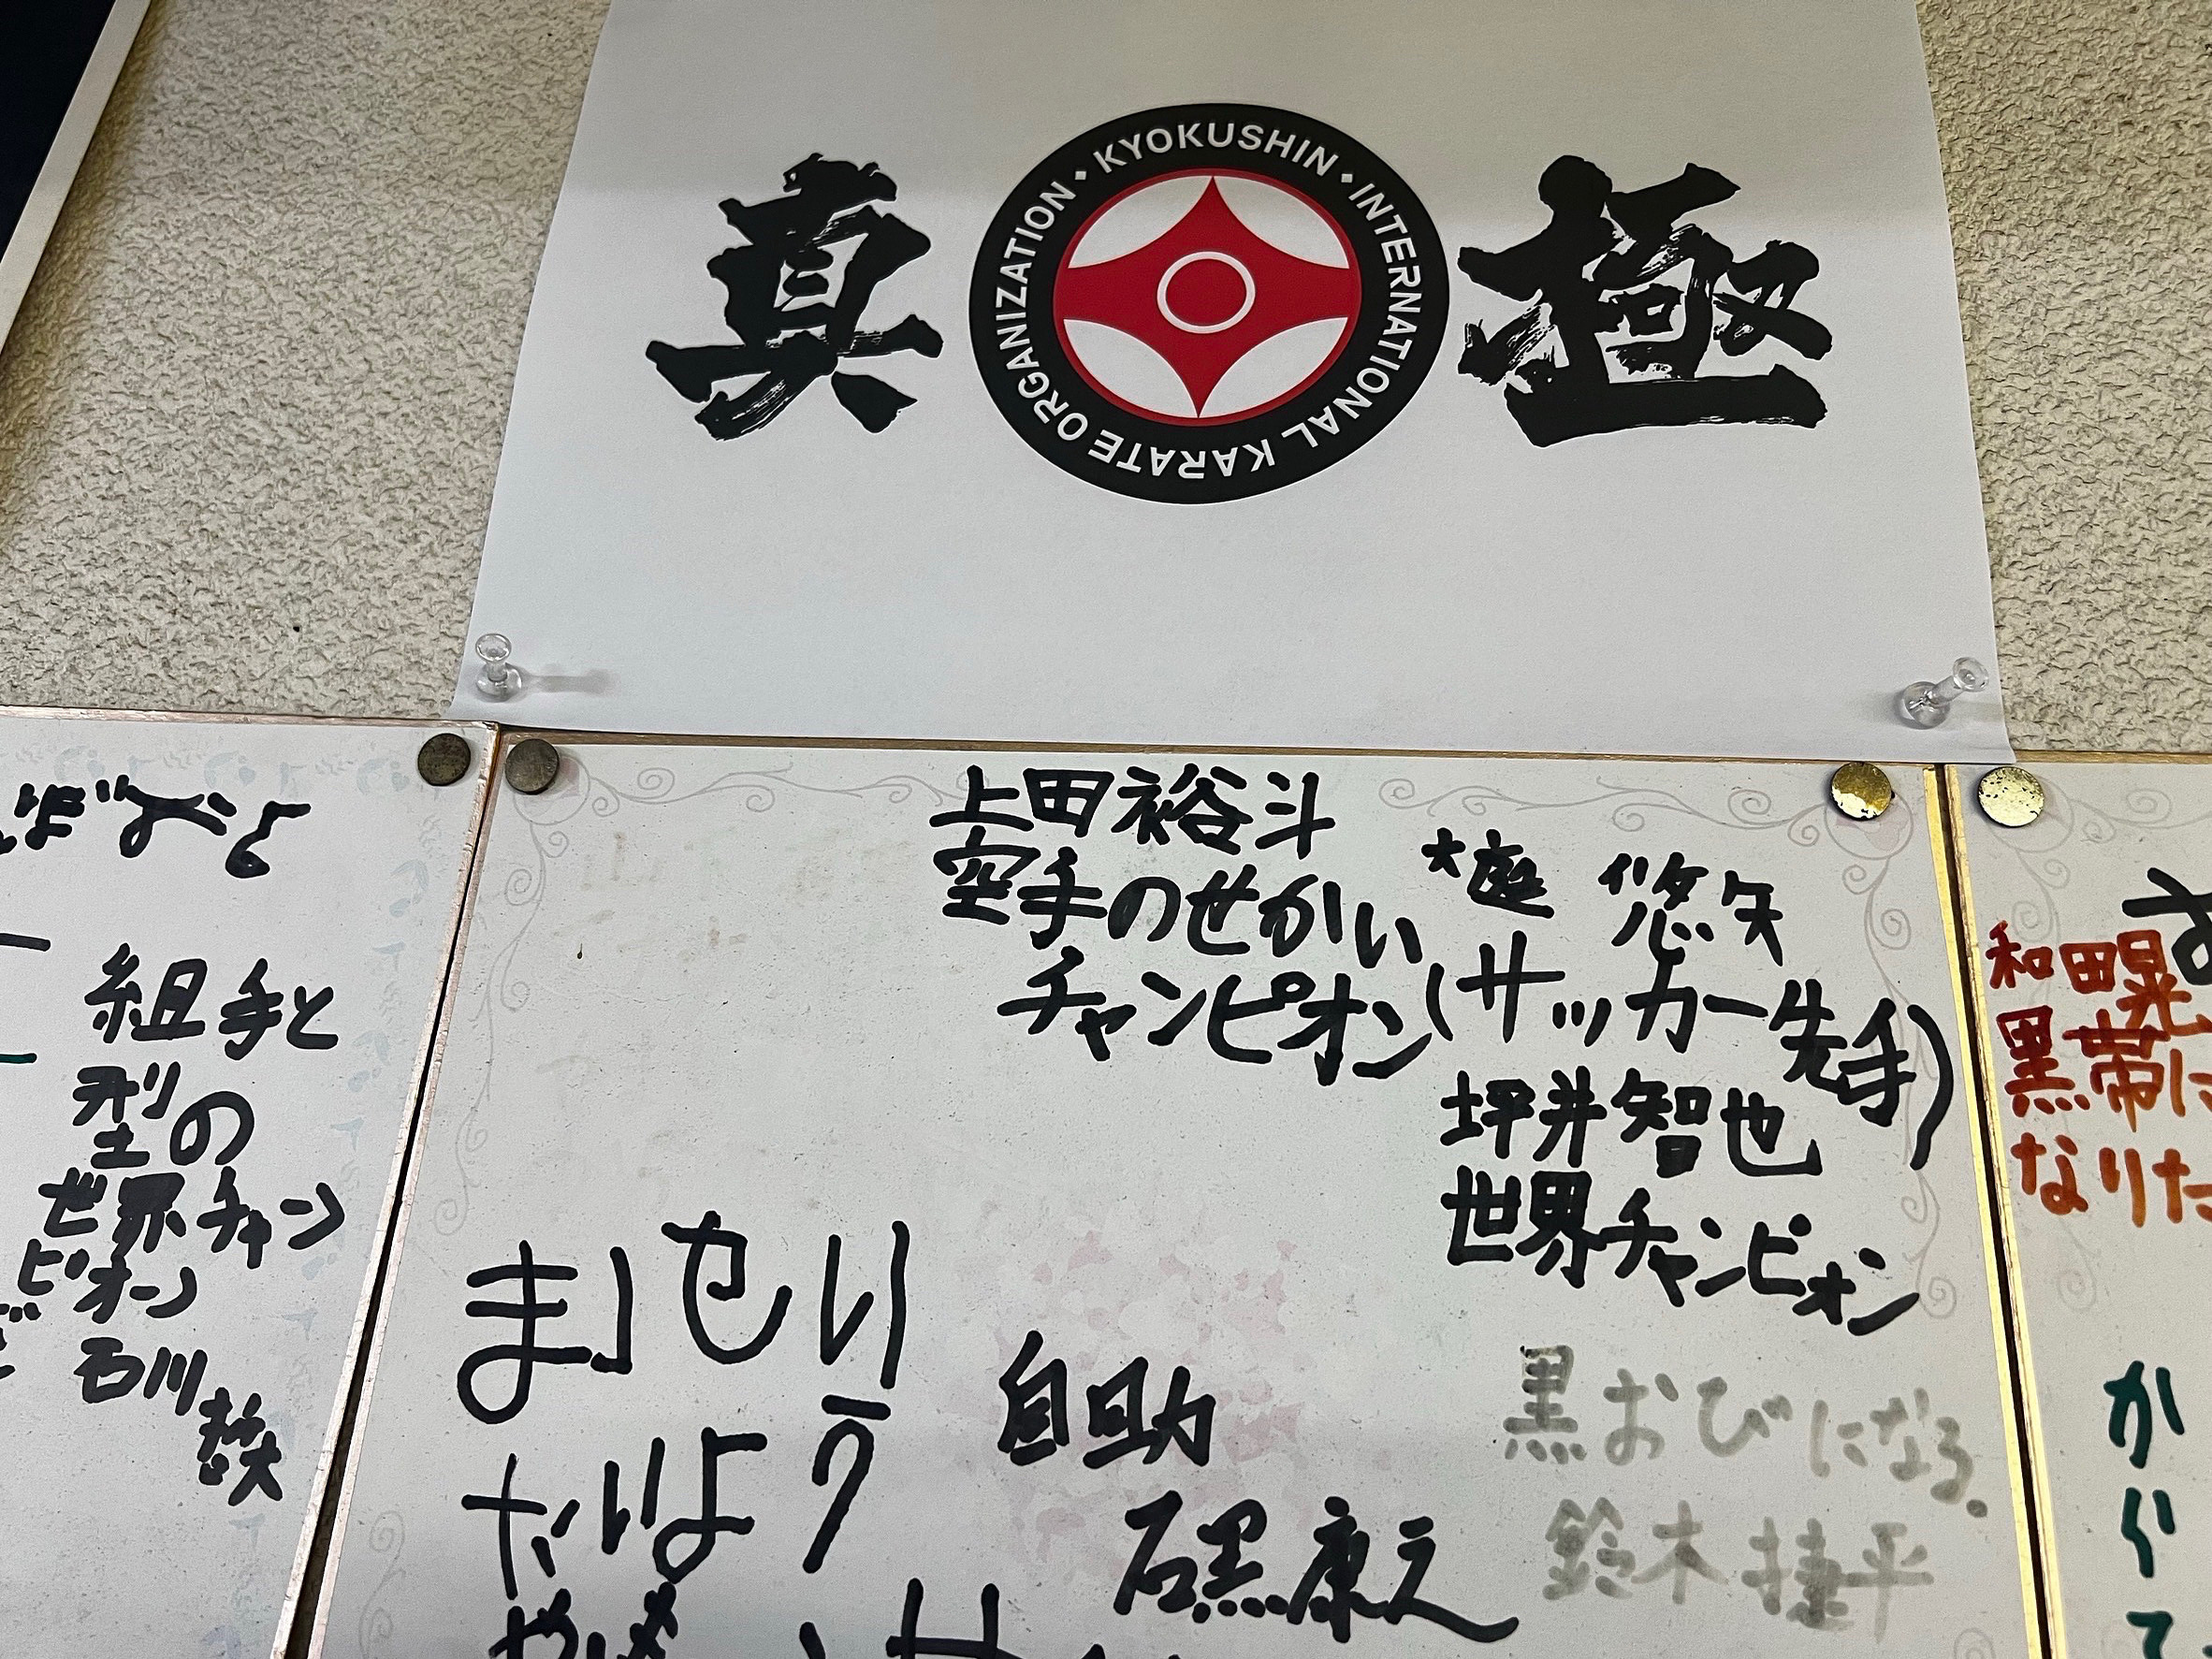 真 極
KYOKUSHIN・INTERNATIONAL KARATE ORGANIZATION・
組手と
型の
世界チャン
ピオン
石川
上田裕斗
空手のせかい
チャンピオン
大庭 悠矢
(サッカー先手)
坪井智也
世界チャンピオン
自助
石黒康之
黒おびになる.
鈴木捷平
和田晃
黒帯に
なりた